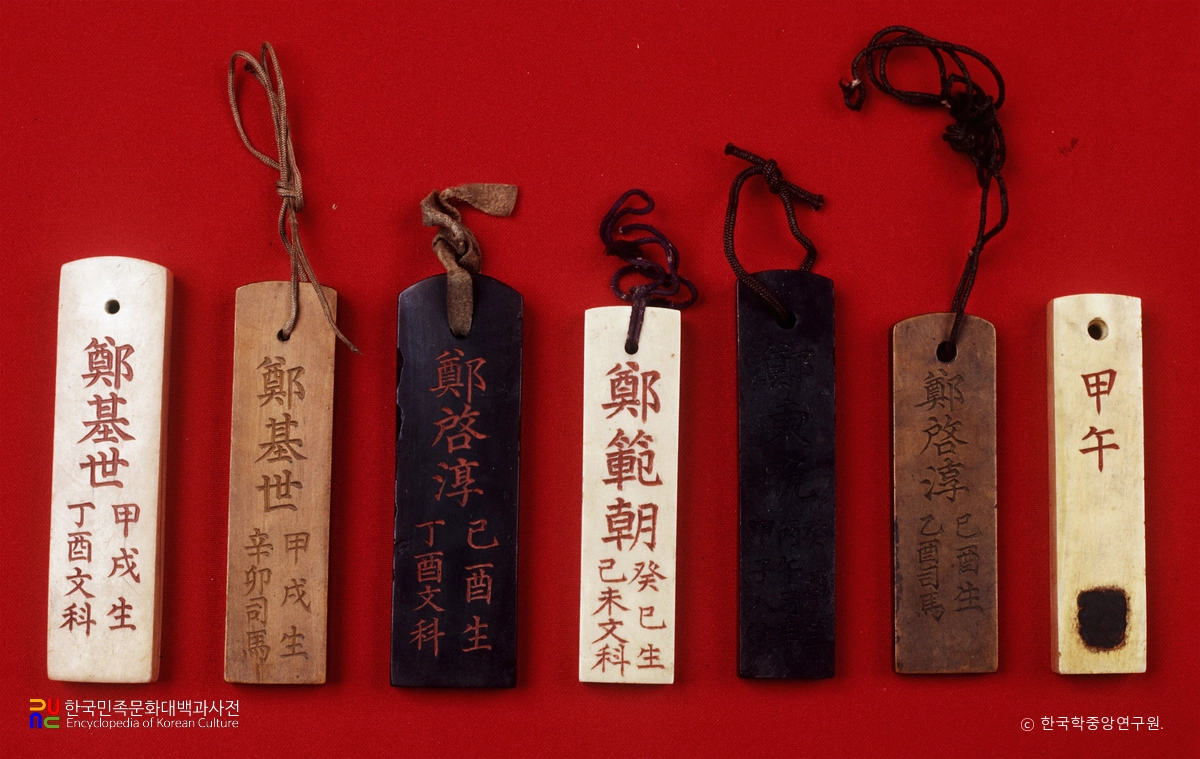 鄭基世
甲戌生
丁酉文科
鄭基世
甲戌生
辛卯司馬
鄭啓淳
己酉生
丁酉文科
鄭範朝
癸巳生
己未文科
鄭東
甲子
鄭啓淳
己酉生
乙酉司馬
甲午
한국민족문화대백과사전
Encyclopedia of Korean Culture
ⓒ 한국학중앙연구원.